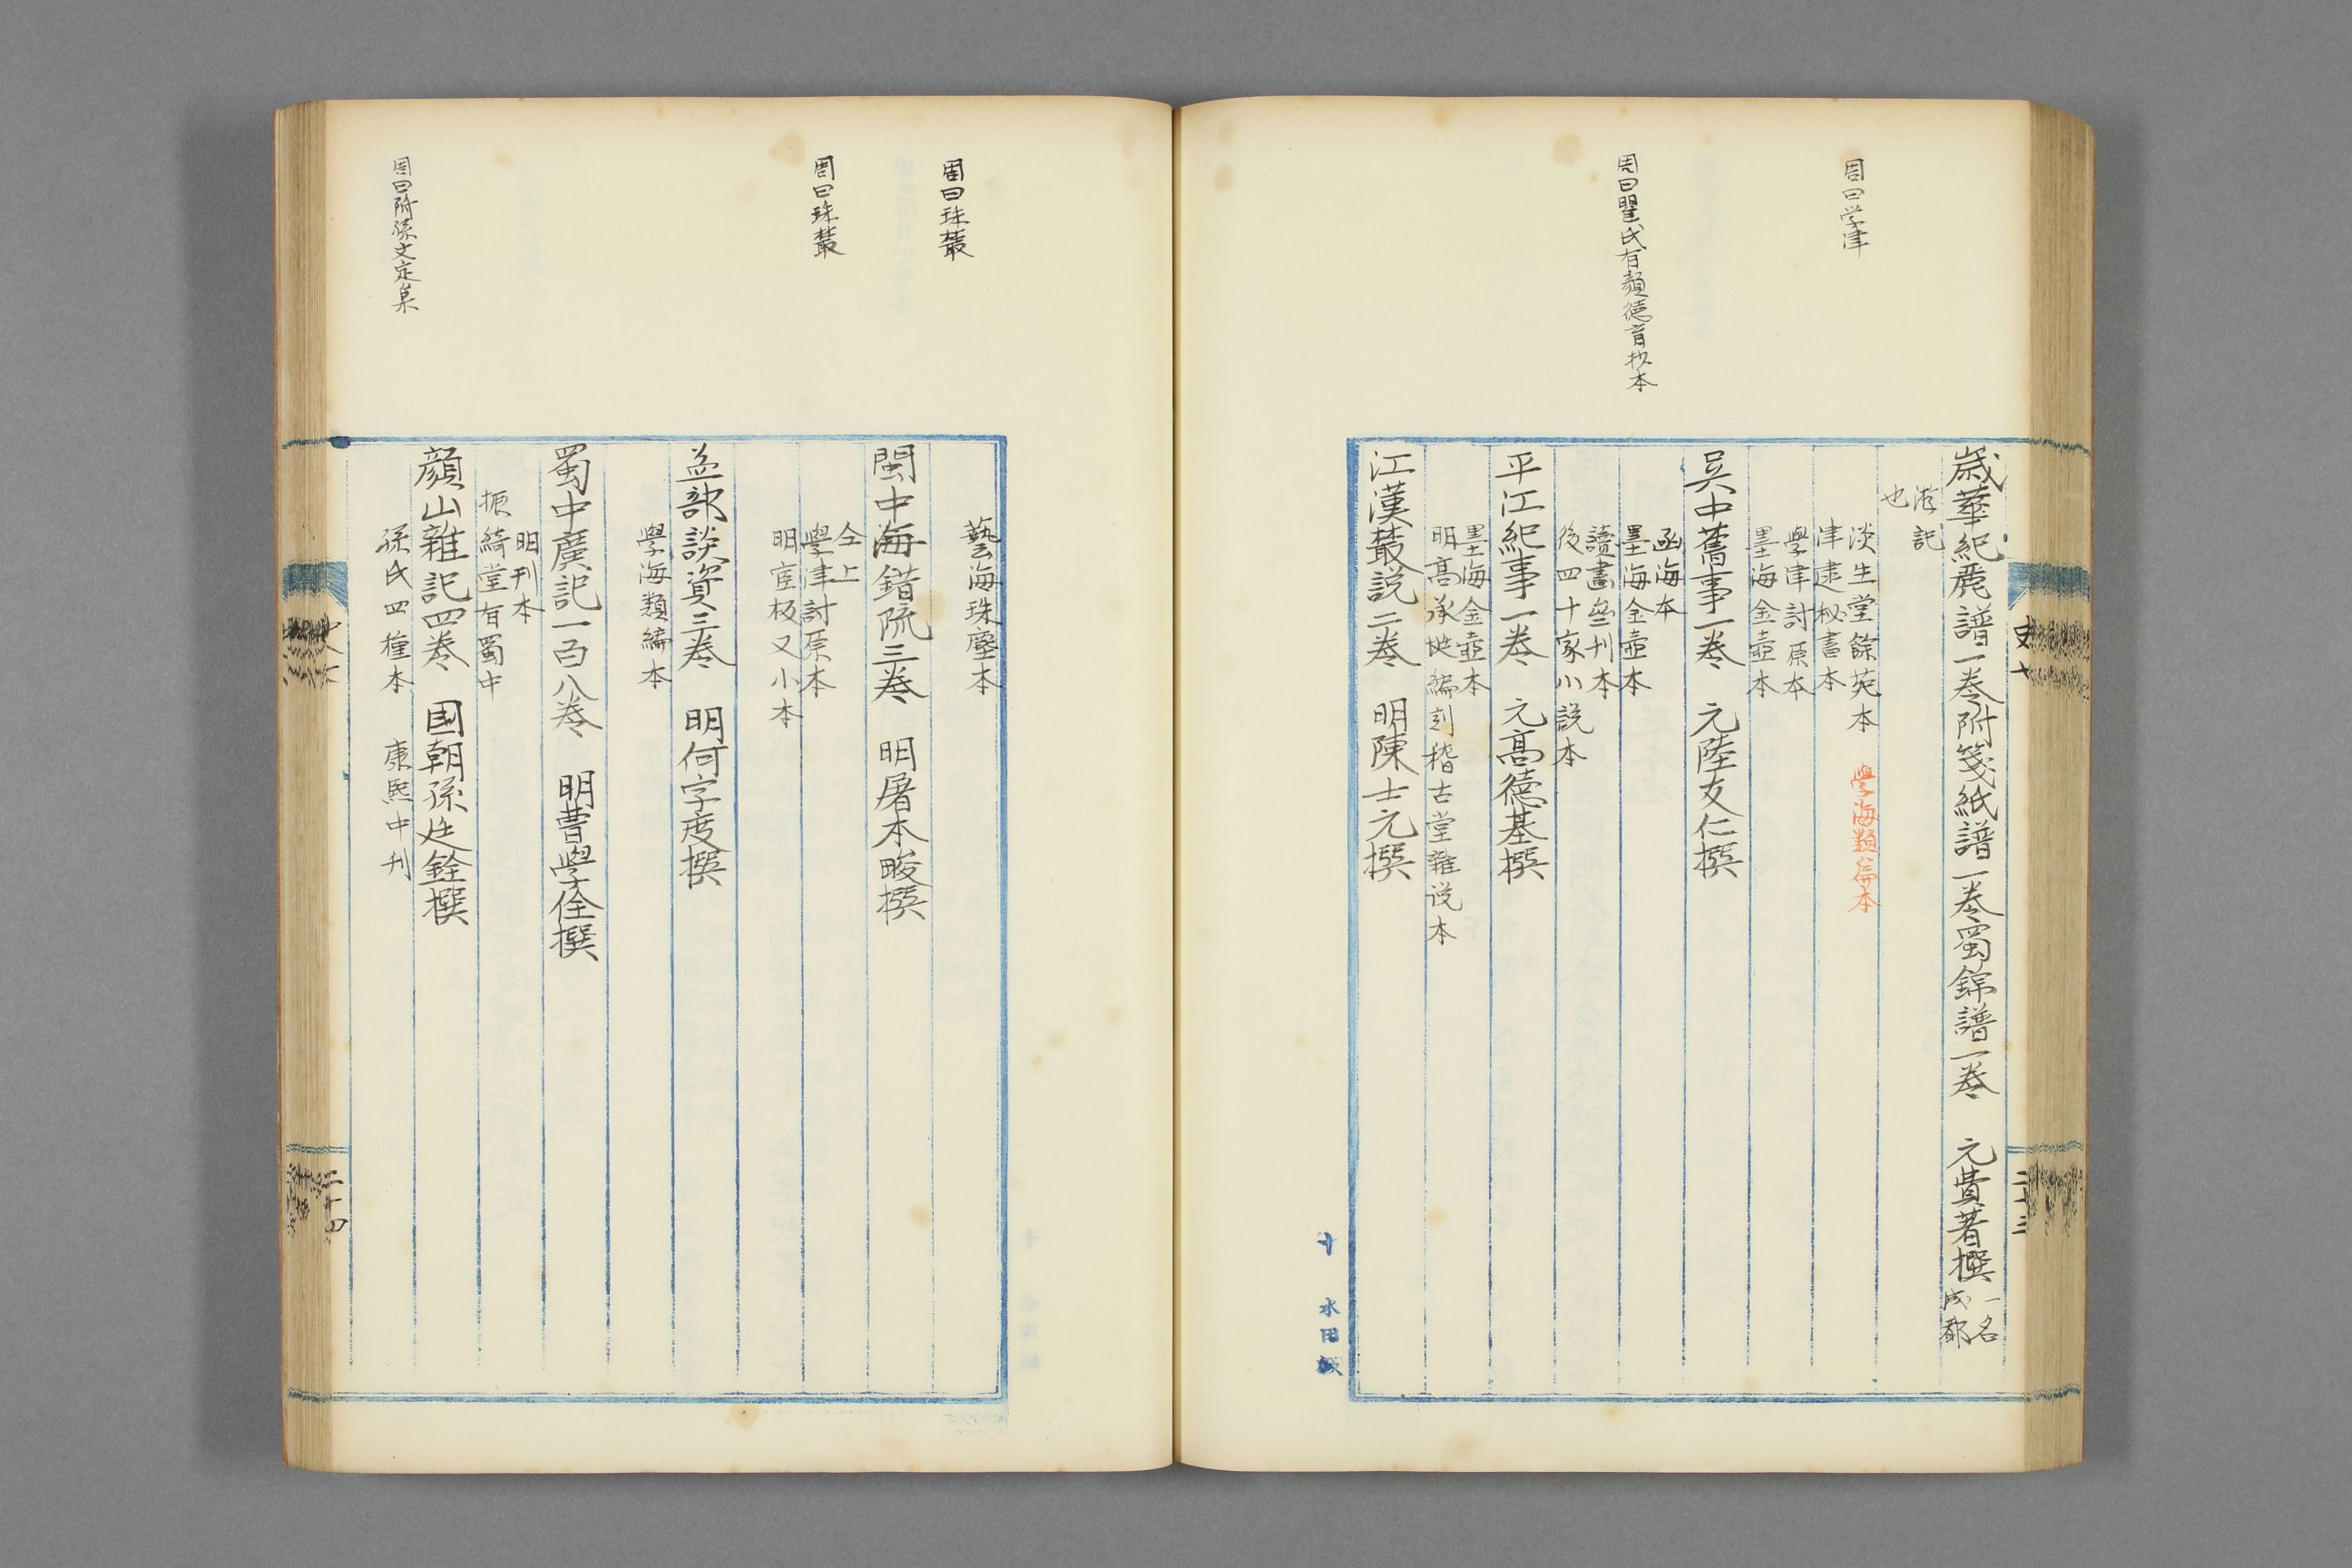 周曰学津
周曰瞿氏有顔徳育抄本
歳華紀麗譜一巻附箋紙譜一巻蜀錦譜一巻　元費著撰　一名
成都
游記
也
淡生堂餘苑本　學海類編本
津逮秘書本
學津討原本
墨海金壺本
吳中舊事一巻　元陸友仁撰
函海本
墨海金壺本
讀畫齋刊本
後四十家小説本
平江紀事一巻　元髙徳基撰
墨海金壺本
明髙承埏編刻稽古堂雜说本
江漢叢説二巻　明陳士元撰
史十
二十三
十　水田
周曰珠叢
周曰珠叢
周曰附孫文定集
藝海珠塵本
閩中海錯疏三巻　明屠本畯撰
仝上
學津討原本
明宦板又小本
益部談資三巻　明何宇度撰
學海類編本
蜀中廣記一百八巻　明曹學佺撰
明刊本
振綺堂有蜀中
顔山雜記四巻　国朝孫廷銓撰
孫氏四種本　康熙中刊
二十四